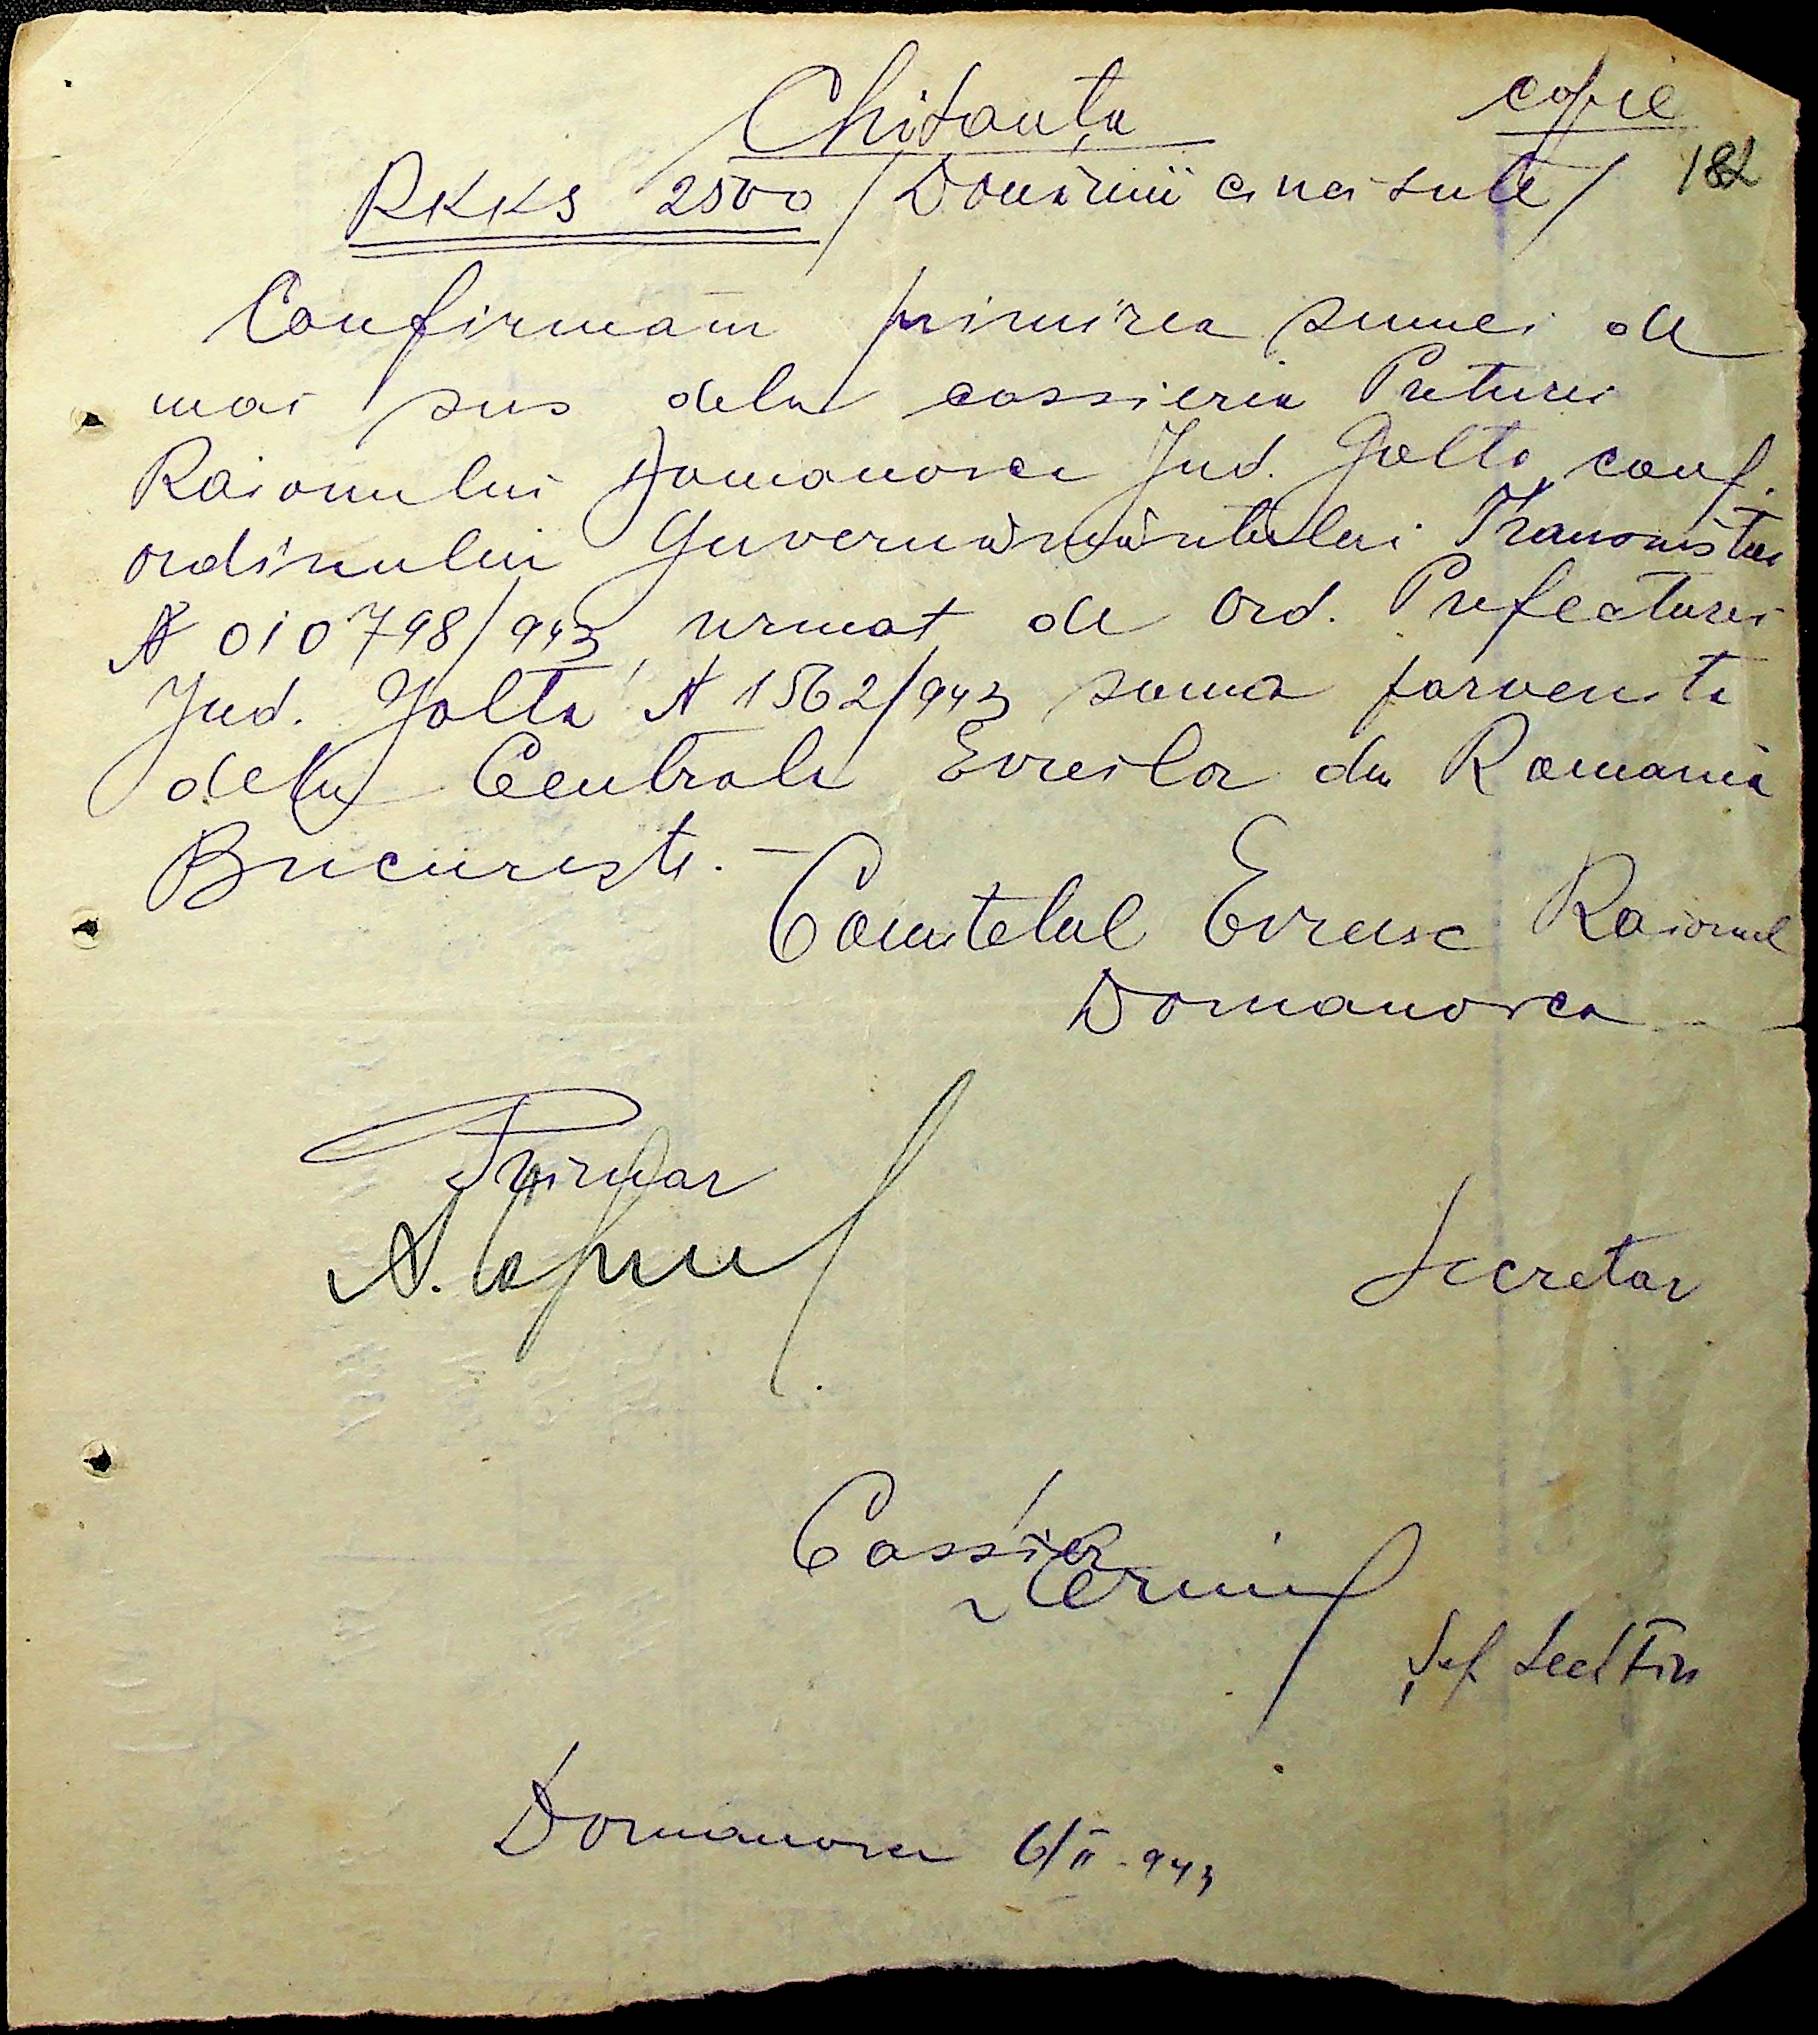 copie
Chitanța
182
RKKS 2500 /Douămii cinci sute/
Confirmăm primirea sumei de
mai sus dela cassieria Preturei
Raionului Domanovca Jud. Golta, conf.
ordinului Guvernământului Transnistriei
N 010798/943, urmat de Ord. Prefecturei
Jud. Golta N 1562/943 suma parvenita
dela Centrala Evreilor din Romania
Bucuresti. —
Comitetul Evreesc Raional
Domanovca
Primar
Secretar
Cassier
Șef Sect Fin
Domanovca 6/II-943